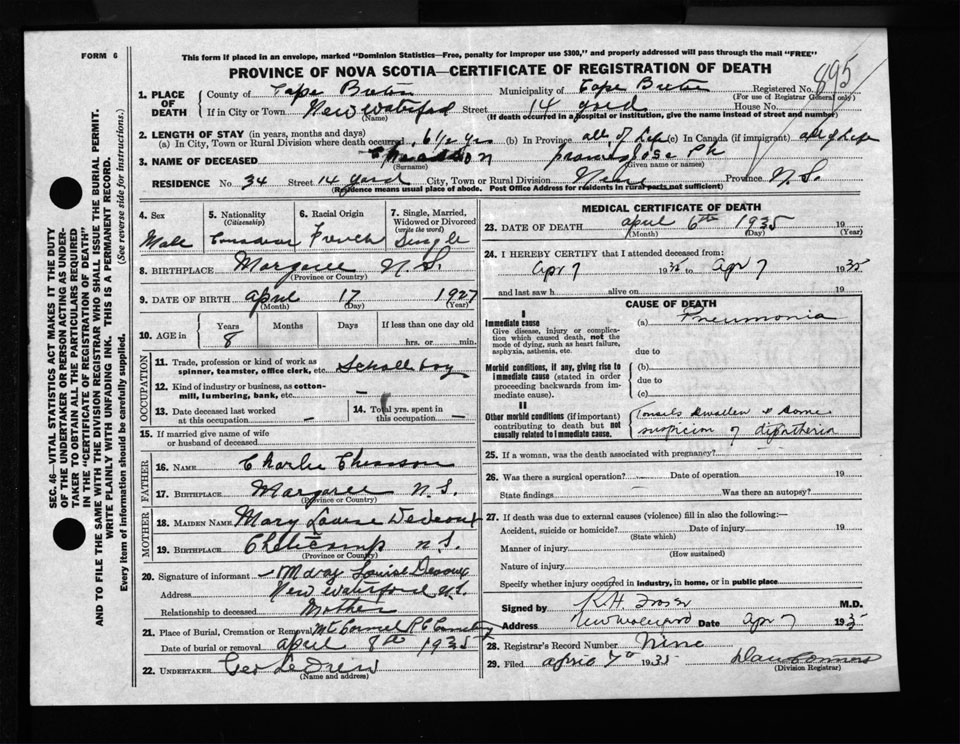 FORM 6
This form if placed in an envelope, marked "Dominion Statistics—Free, penalty for improper use $300," and properly addressed will pass through the mail "FREE"
PROVINCE OF NOVA SCOTIA—CERTIFICATE OF REGISTRATION OF DEATH
895
1. PLACE OF DEATH
County of Cape Breton Municipality of Cape Breton Registered No.
(For use of Registrar General only)
If in City or Town New Waterford Street 14 yard House No.
(Name) (If death occurred in a hospital or institution, give the name instead of street and number)
2. LENGTH OF STAY (in years, months and days)
(a) In City, Town or Rural Division where death occurred 6 1/2 yrs (b) In Province all of Life (c) In Canada (if immigrant) all of Life
3. NAME OF DECEASED
(Surname) (Given name or names)
RESIDENCE No. 34 Street 14 yard City, Town or Rural Division Province N.S.
(Residence means usual place of abode. Post Office Address for residents in rural parts not sufficient)
4. Sex
Male
5. Nationality
(Citizenship)
6. Racial Origin
French
7. Single, Married, Widowed or Divorced
(write the word)
Single
8. BIRTHPLACE Margaree N.S.
(Province or Country)
9. DATE OF BIRTH April 17 1927
(Month) (Day) (Year)
10. AGE in
Years Months Days If less than one day old
8 hrs. or min.
OCCUPATION
11. Trade, profession or kind of work as spinner, teamster, office clerk, etc. School boy
12. Kind of industry or business, as cotton-mill, lumbering, bank, etc. —
13. Date deceased last worked at this occupation —
14. Total yrs. spent in this occupation —
15. If married give name of wife or husband of deceased
FATHER
16. NAME Charlie
17. BIRTHPLACE Margaree N.S.
(Province or Country)
MOTHER
18. MAIDEN NAME Mary Louise
19. BIRTHPLACE N.S.
(Province or Country)
20. Signature of informant Mary Louise
Address New Waterford N.S.
Relationship to deceased Mother
21. Place of Burial, Cremation or Removal
Date of burial or removal April 8th 1935
22. UNDERTAKER Geo LeDrew
(Name and address)
MEDICAL CERTIFICATE OF DEATH
23. DATE OF DEATH April 6th 1935 19
(Month) (Day) (Year)
24. I HEREBY CERTIFY that I attended deceased from
Apr 7 1935 to Apr 7 1935
and last saw h alive on 19
CAUSE OF DEATH
I
Immediate cause
Give disease, injury or complication which caused death, not the mode of dying, such as heart failure, asphyxia, asthenia, etc.
(a) Pneumonia
due to
Morbid conditions, if any, giving rise to immediate cause (stated in order proceeding backwards from immediate cause).
(b)
due to
(c)
II
Other morbid conditions (if important) contributing to death but not causally related to immediate cause.
Tonsils Swollen & Some
suspicion of diptheria
25. If a woman, was the death associated with pregnancy?
26. Was there a surgical operation? Date of operation 19
State findings Was there an autopsy?
27. If death was due to external causes (violence) fill in also the following:—
Accident, suicide or homicide? Date of injury 19
(State which)
Manner of injury
(How sustained)
Nature of injury
Specify whether injury occurred in industry, in home, or in public place
Signed by M.D.
Address Date Apr 7 1935
28. Registrar's Record Number Nine
29. Filed April 7th 1935 Dan Connors
(Division Registrar)
SEC. 46—VITAL STATISTICS ACT MAKES IT THE DUTY
OF THE UNDERTAKER OR PERSON ACTING AS UNDER-
TAKER TO OBTAIN ALL THE PARTICULARS REQUIRED
IN THE "CERTIFICATE OF REGISTRATION OF DEATH"
AND TO FILE THE SAME WITH THE DIVISION REGISTRAR WHO SHALL ISSUE THE BURIAL PERMIT.
WRITE PLAINLY WITH UNFADING INK. THIS IS A PERMANENT RECORD.
Every item of information should be carefully supplied. (See reverse side for instructions.)